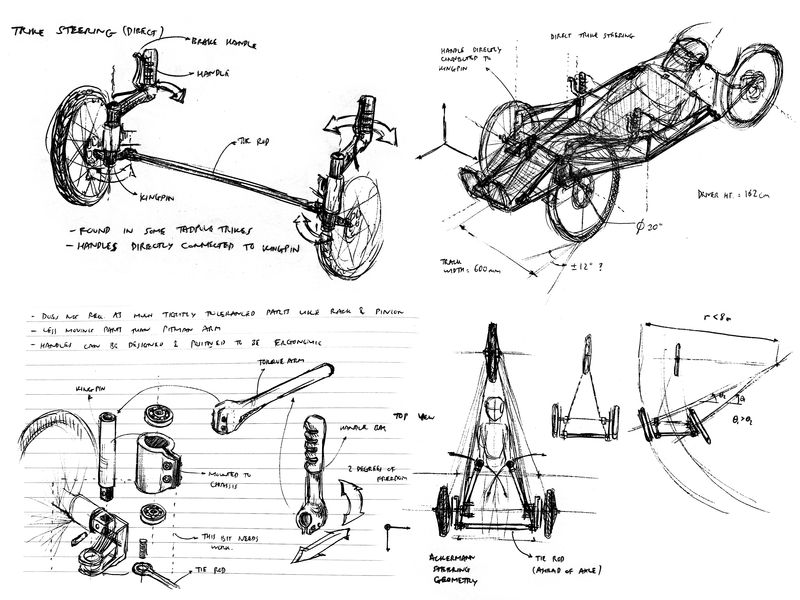 TRIKE STEERING (DIRECT)
BRAKE HANDLE
HANDLE
TIE ROD
KINGPIN
- FOUND IN SOME TADPOLE TRIKES
- HANDLES DIRECTLY CONNECTED TO KINGPIN
DIRECT TRIKE STEERING
HANDLE DIRECTLY
CONNECTED TO
KINGPIN
DRIVER HT. : 162cm
Ø 20"
± 12° ?
TRACK
WIDTH: 600mm
- DOES NOT REQ. AS MUCH TIGHTLY TOLERANCED PARTS LIKE RACK & PINION
- LESS MOVING PARTS THAN PITMAN ARM
- HANDLES CAN BE DESIGNED & POSITIONED TO BE ERGONOMIC
TORQUE ARM
KINGPIN
HANDLE BAR
MOUNTED TO
CHASSIS
2 DEGREES OF
FREEDOM
THIS BIT NEEDS
WORK.
TIE ROD
TOP VIEW
r < 8m
θ₁ > θ₂
ACKERMANN
STEERING
GEOMETRY
TIE ROD
(AHEAD OF AXLE)